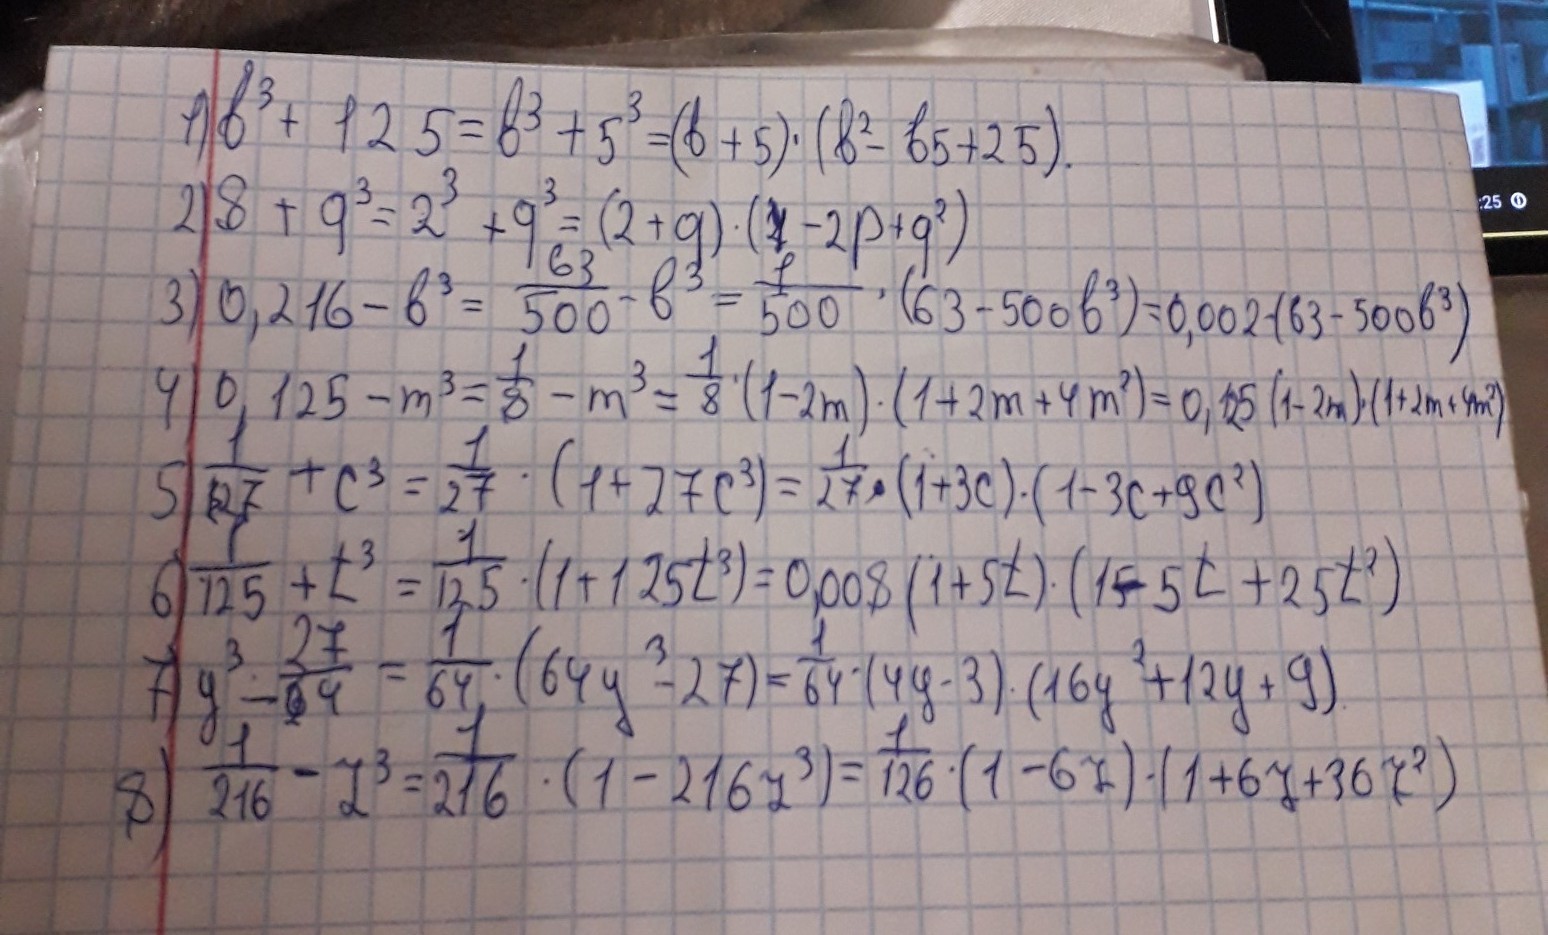 :25
1) b³ + 125 = b³ + 5³ = (b + 5) · (b² - b5 + 25).
2) 8 + q³ = 2³ + q³ = (2 + q) · (4 - 2p + q²)
3) 0,216 - b³ = 63/500 - b³ = 1/500 · (63 - 500b³) = 0,002 · (63 - 500b³)
4) 0,125 - m³ = 1/8 - m³ = 1/8 · (1 - 2m) · (1 + 2m + 4m²) = 0,125 (1 - 2m) · (1 + 2m + 4m²)
5) 1/27 + c³ = 1/27 · (1 + 27c³) = 1/27 · (1 + 3c) · (1 - 3c + 9c²)
6) 1/125 + t³ = 1/125 · (1 + 125t³) = 0,008 (1 + 5t) · (1 - 5t + 25t²)
7) y³ - 27/64 = 1/64 · (64y³ - 27) = 1/64 · (4y - 3) · (16y² + 12y + 9).
8) 1/216 - z³ = 1/216 · (1 - 216z³) = 1/126 · (1 - 6z) · (1 + 6z + 36z²)